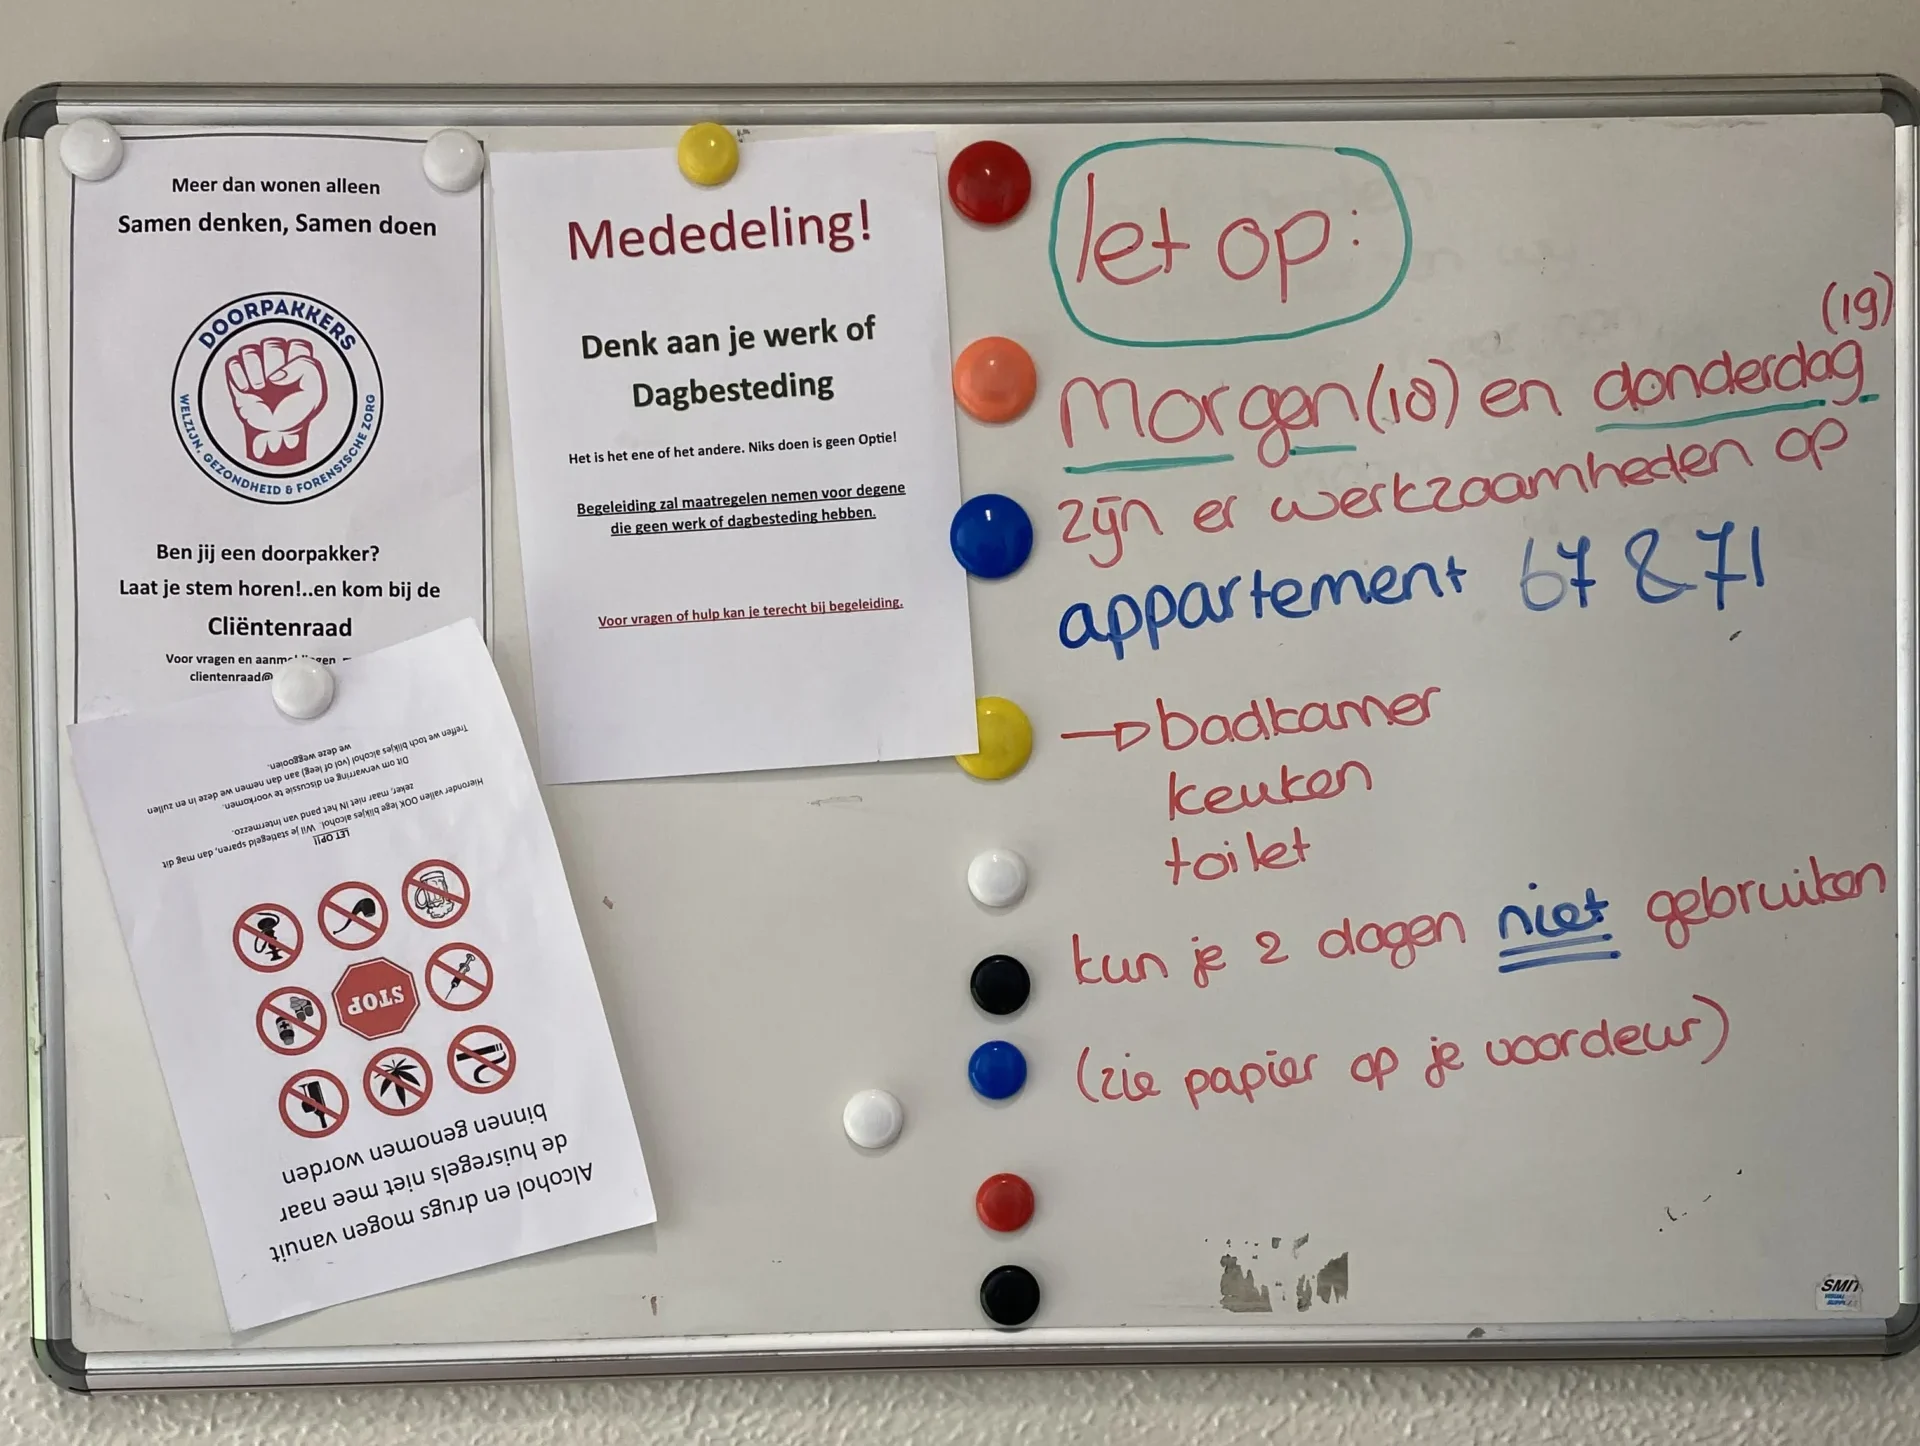 Meer dan wonen alleen
Samen denken, Samen doen
DOORPAKKERS
WELZIJN, GEZONDHEID & FORENSISCHE ZORG
Ben jij een doorpakker?
Laat je stem horen!..en kom bij de
Cliëntenraad
Voor vragen en
clientenraad@
Alcohol en drugs mogen vanuit
de huisregels niet mee naar
binnen genomen worden
STOP
LET OP!!
Hieronder vallen OOK lege blikjes alcohol. Wil je statiegeld sparen, dan mag dit
zeker, maar niet IN het pand van Intermezzo.
Dit om verwarring en discussie te voorkomen.
Treffen we toch blikjes alcohol (vol of leeg) aan dan nemen we deze in en zullen
we deze weggooien.
Mededeling!
Denk aan je werk of
Dagbesteding
Het is het ene of het andere. Niks doen is geen Optie!
Begeleiding zal maatregelen nemen voor degene
die geen werk of dagbesteding hebben.
Voor vragen of hulp kan je terecht bij begeleiding.
let op:
(19)
Morgen (18) en donderdag
zijn er werkzaamheden op
appartement 67 & 71
→ badkamer
keuken
toilet
kun je 2 dagen niet gebruiken
(zie papier op je voordeur)
SMIT
VISUAL